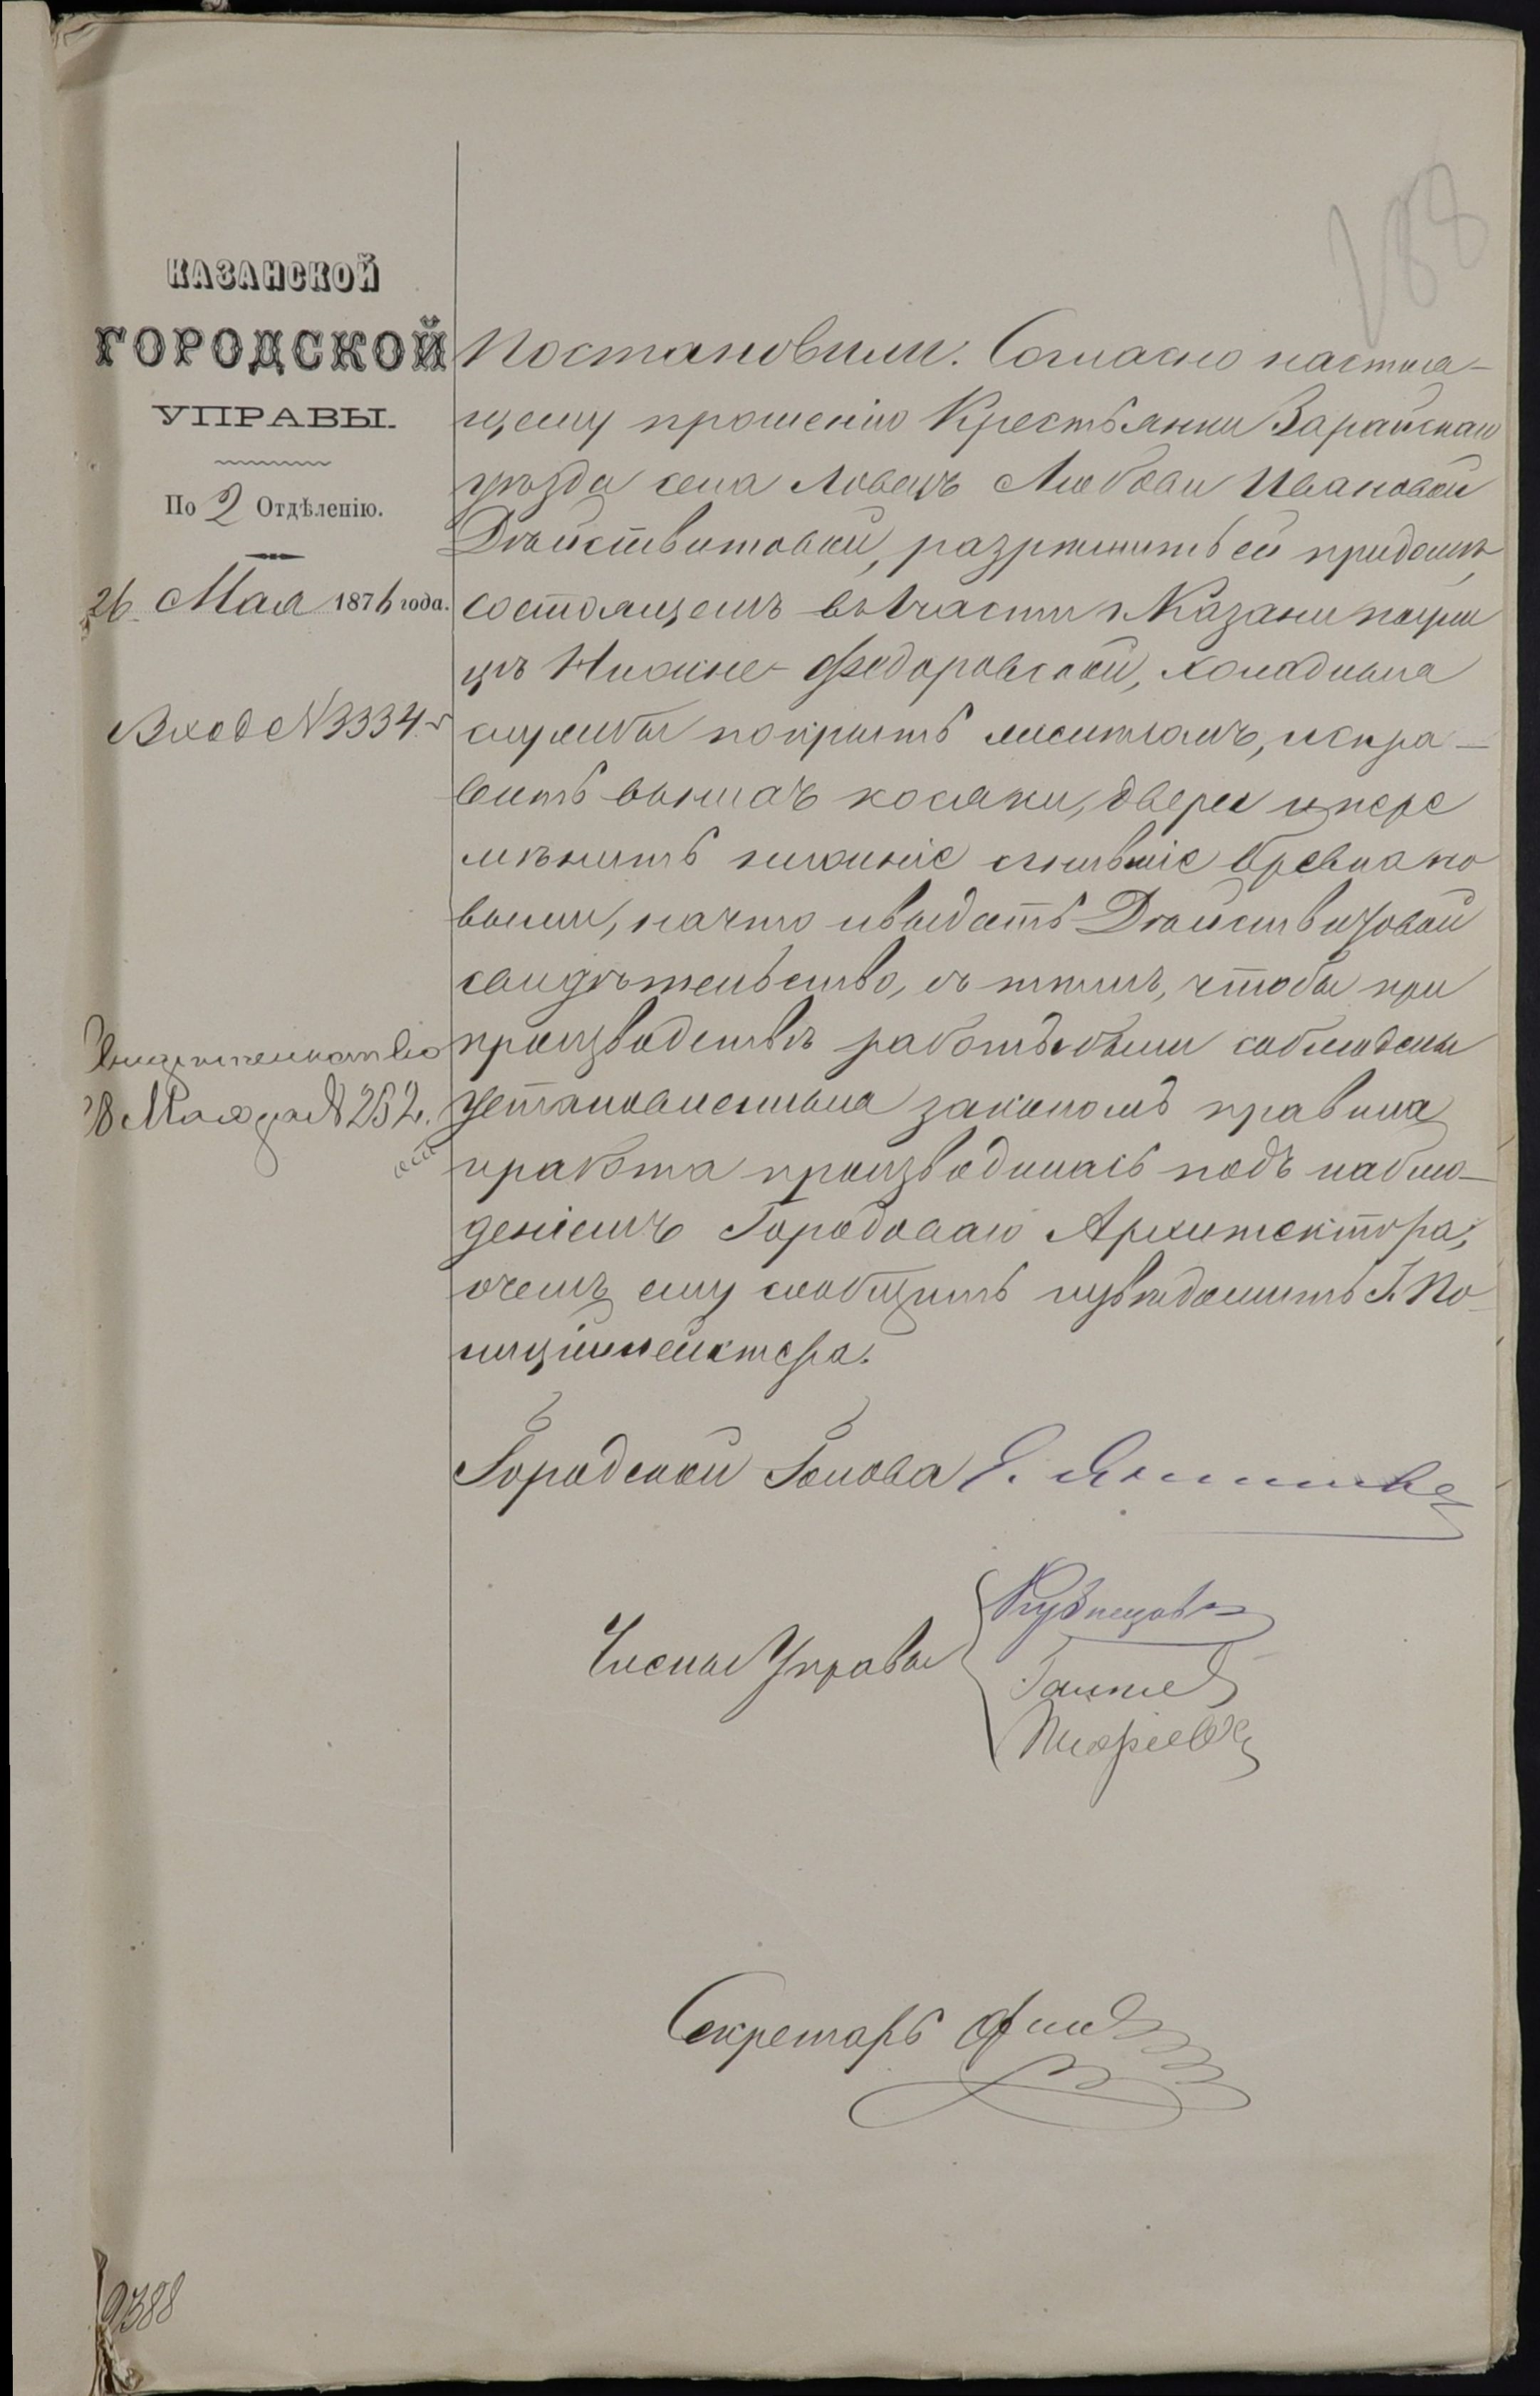 188
КАЗАНСКОЙ
ГОРОДСКОЙ
УПРАВЫ.
По 2 Отдѣленію.
26 Мая 1876 года.
Вход № 3334
Свидѣтельство
28 Мая за № 252.
Постановили. Согласно настоя-
щему прошенію Крестьянки Зарайскаго
уѣзда села Ловецъ Любови Ивановой
Дѣйствитовой, разрѣшить ей при домѣ,
состоящемъ въ 1 части г. Казани по ули
цѣ Нижне-Федоровской, холодныя
службы покрыть желѣзомъ, испра-
вить въ нихъ косяки, двери и пере
мѣнить нижніе сгнившіе бревна но
выми, на что и выдать Дѣйствитовой
свидѣтельство, съ тѣмъ, чтобы при
производствѣ работъ были соблюдены
установленныя закономъ правила
и работа производилась подъ наблю-
деніемъ Городоваго Архитектора,
о чемъ ему сообщить и увѣдомить Г. По-
лиціймейстера.
Городской Голова Э. Янишевскій
Члены Управы
Кузнецовъ
Секретарь
9388